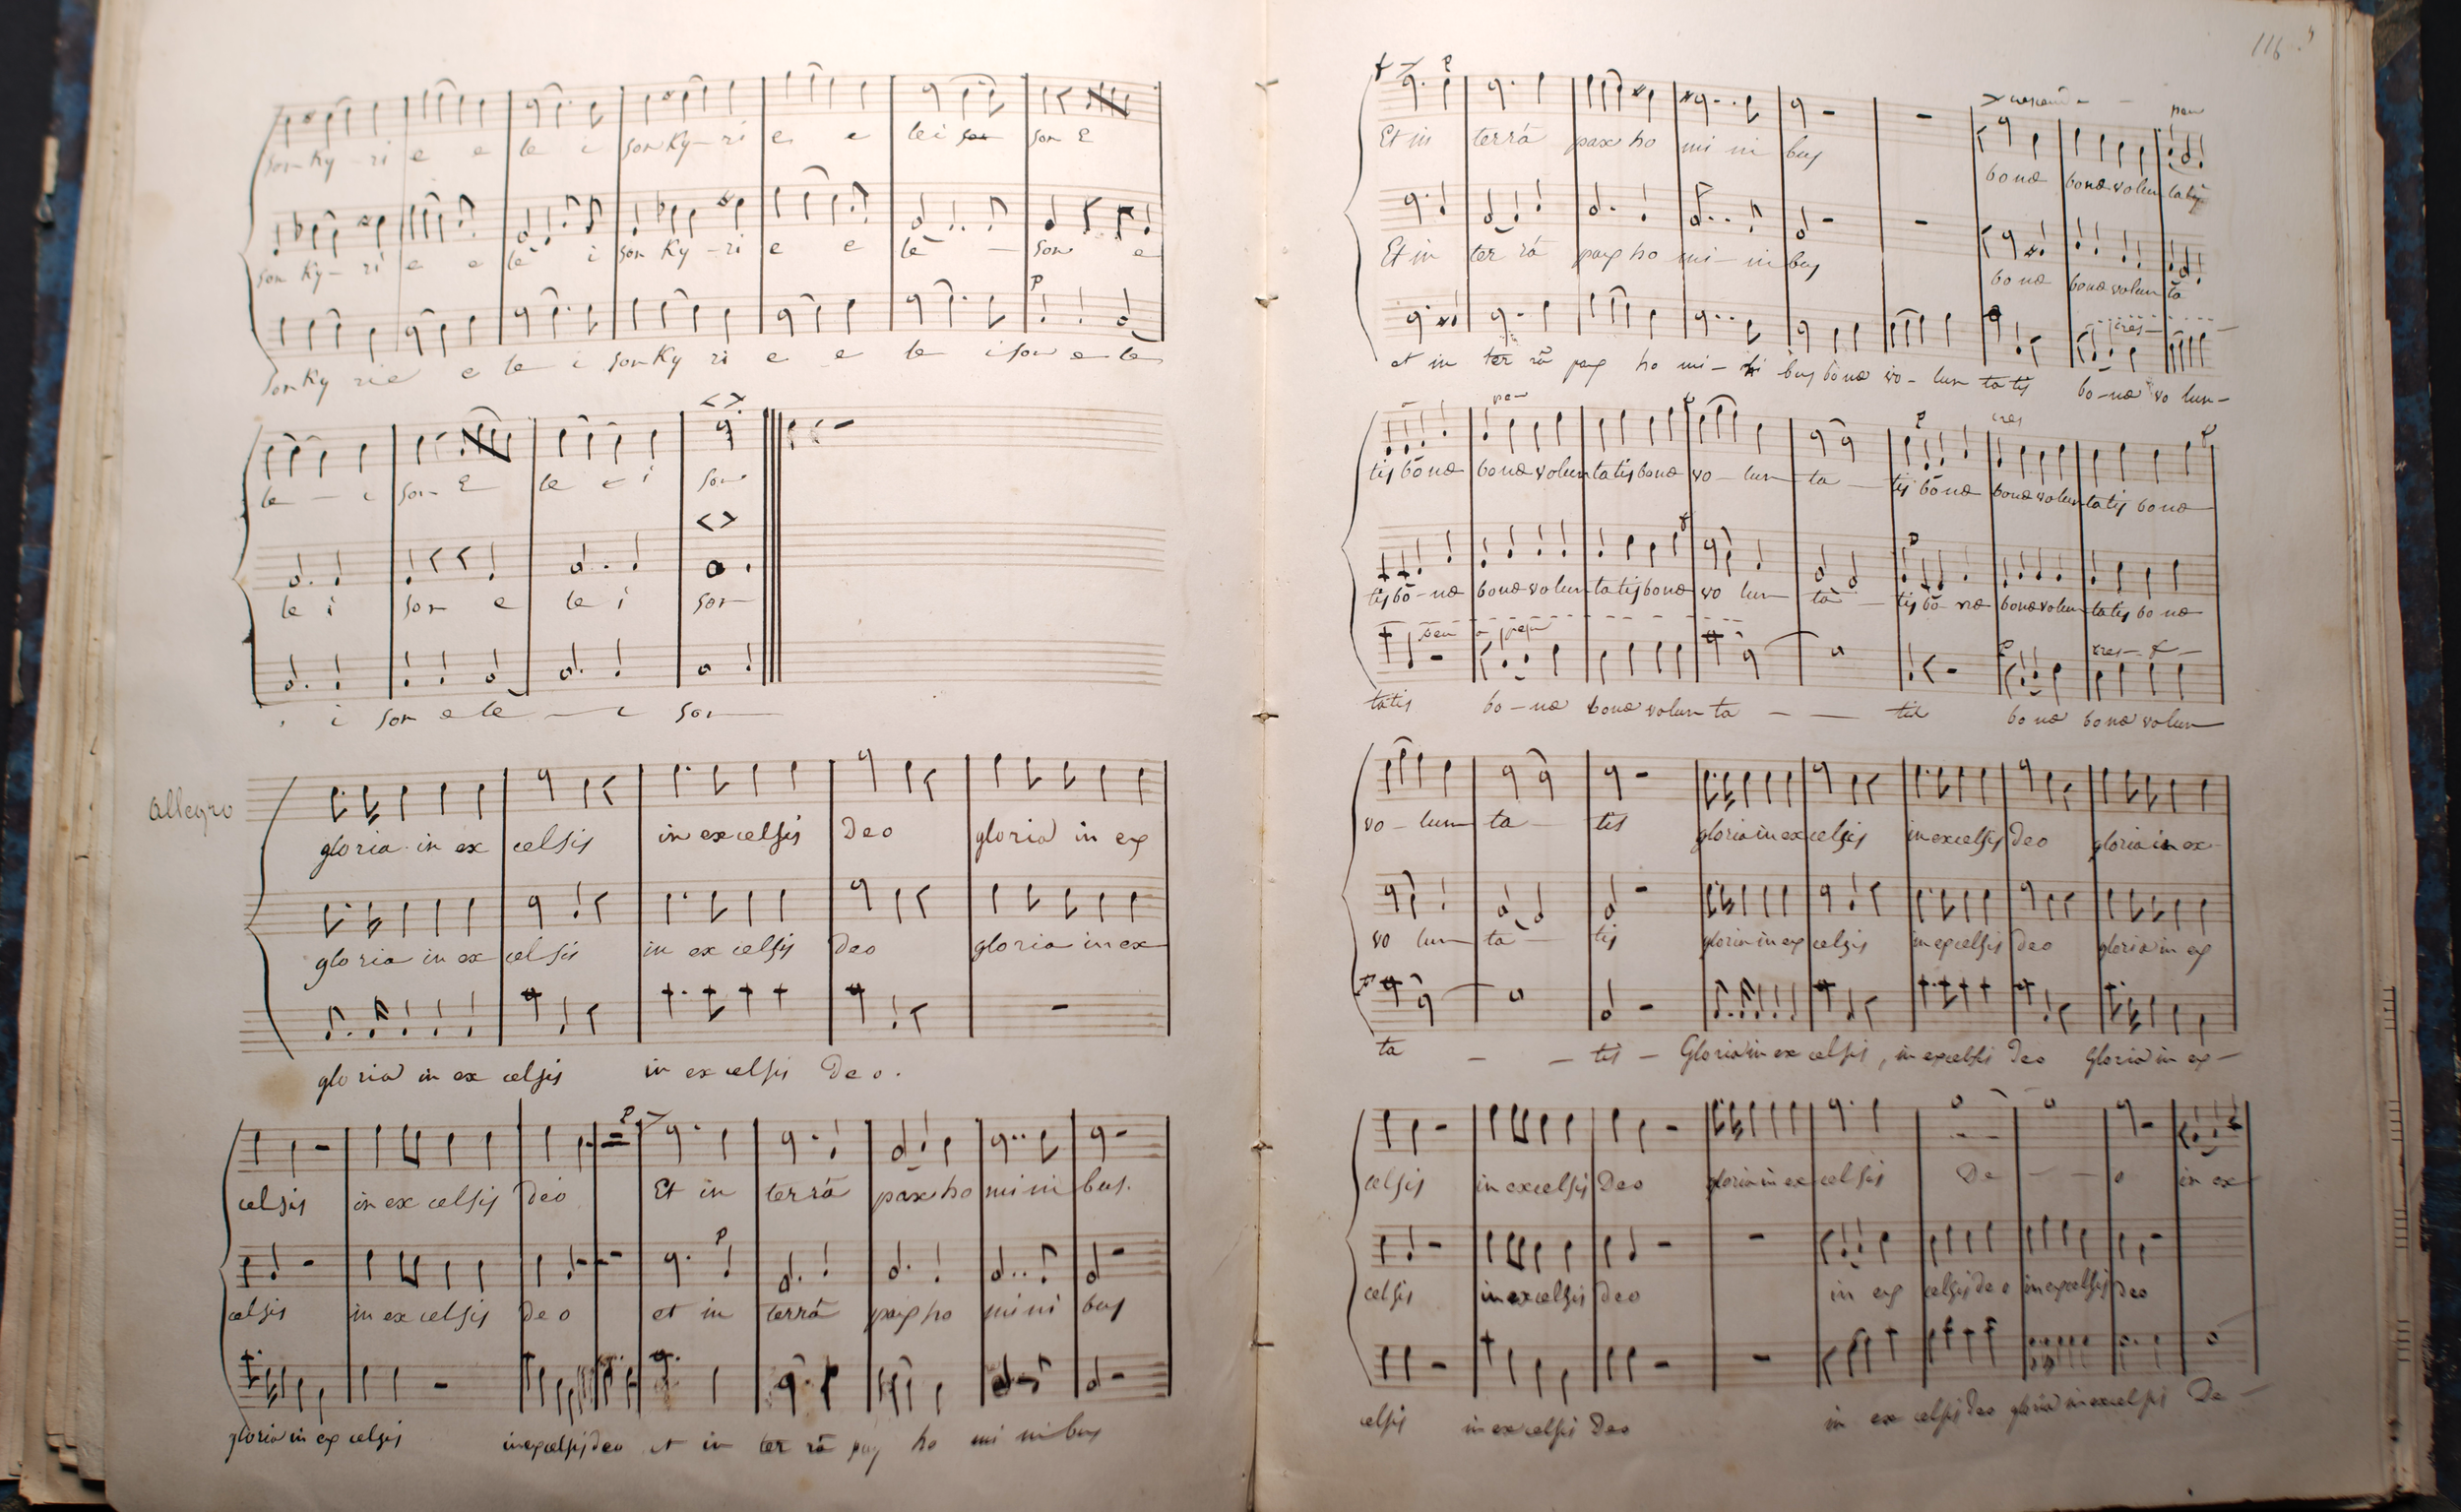 son Ky - ri e e le i son Ky - ri e e le i son son E
son Ky - ri e e le i son Ky - ri e e le - son e
P
son Ky rie e le i son Ky ri e e le i son e le
le - i son E le e i son
le i son e le i son
i son e le - i son
Allegro
gloria in ex celsis in excelsis Deo gloria in ex
gloria in ex celsis in ex celsis Deo gloria in ex
gloria in ex celsis in ex celsis Deo.
P
celsis in ex celsis Deo Et in terrá pax ho mini bus.
P
celsis in ex celsis Deo et in terrá pax ho mini bus
gloria in ex celsis in excelsis deo et in ter rá pax ho mi ni bus
116
f P
Et in terrá pax ho mi ni bus bonæ bonæ volun tatis
Et in ter rá pax ho mi - ni bus bo næ bonæ volun ta
cres
et in ter rá pax ho mi - ni bus bonæ vo - lun ta tis bo - næ vo lun -
f P cres f
tis bonæ bonæ volun tatis bonæ vo - lun ta - tis bonæ bonæ volun tatis bonæ
f P
tis bo - næ bonæ volun tatis bonæ vo lun ta - tis bo næ bonæ volun tatis bo næ
P cres - f -
tatis bo - næ bonæ volun ta - - tis bo næ bonæ volun
vo - lun ta - tis gloria in ex celsis in excelsis Deo gloria in ex -
vo lun ta - tis gloria in ex celsis in excelsis Deo gloria in ex
ta - - tis - Gloria in ex celsis, in excelsis Deo Gloria in ex -
celsis in excelsis Deo gloria in ex celsis De - - o in ex
celsis in excelsis Deo in ex celsis deo in excelsis Deo
celsis in ex celsis Deo in ex celsis Deo gloria in excelsis De -